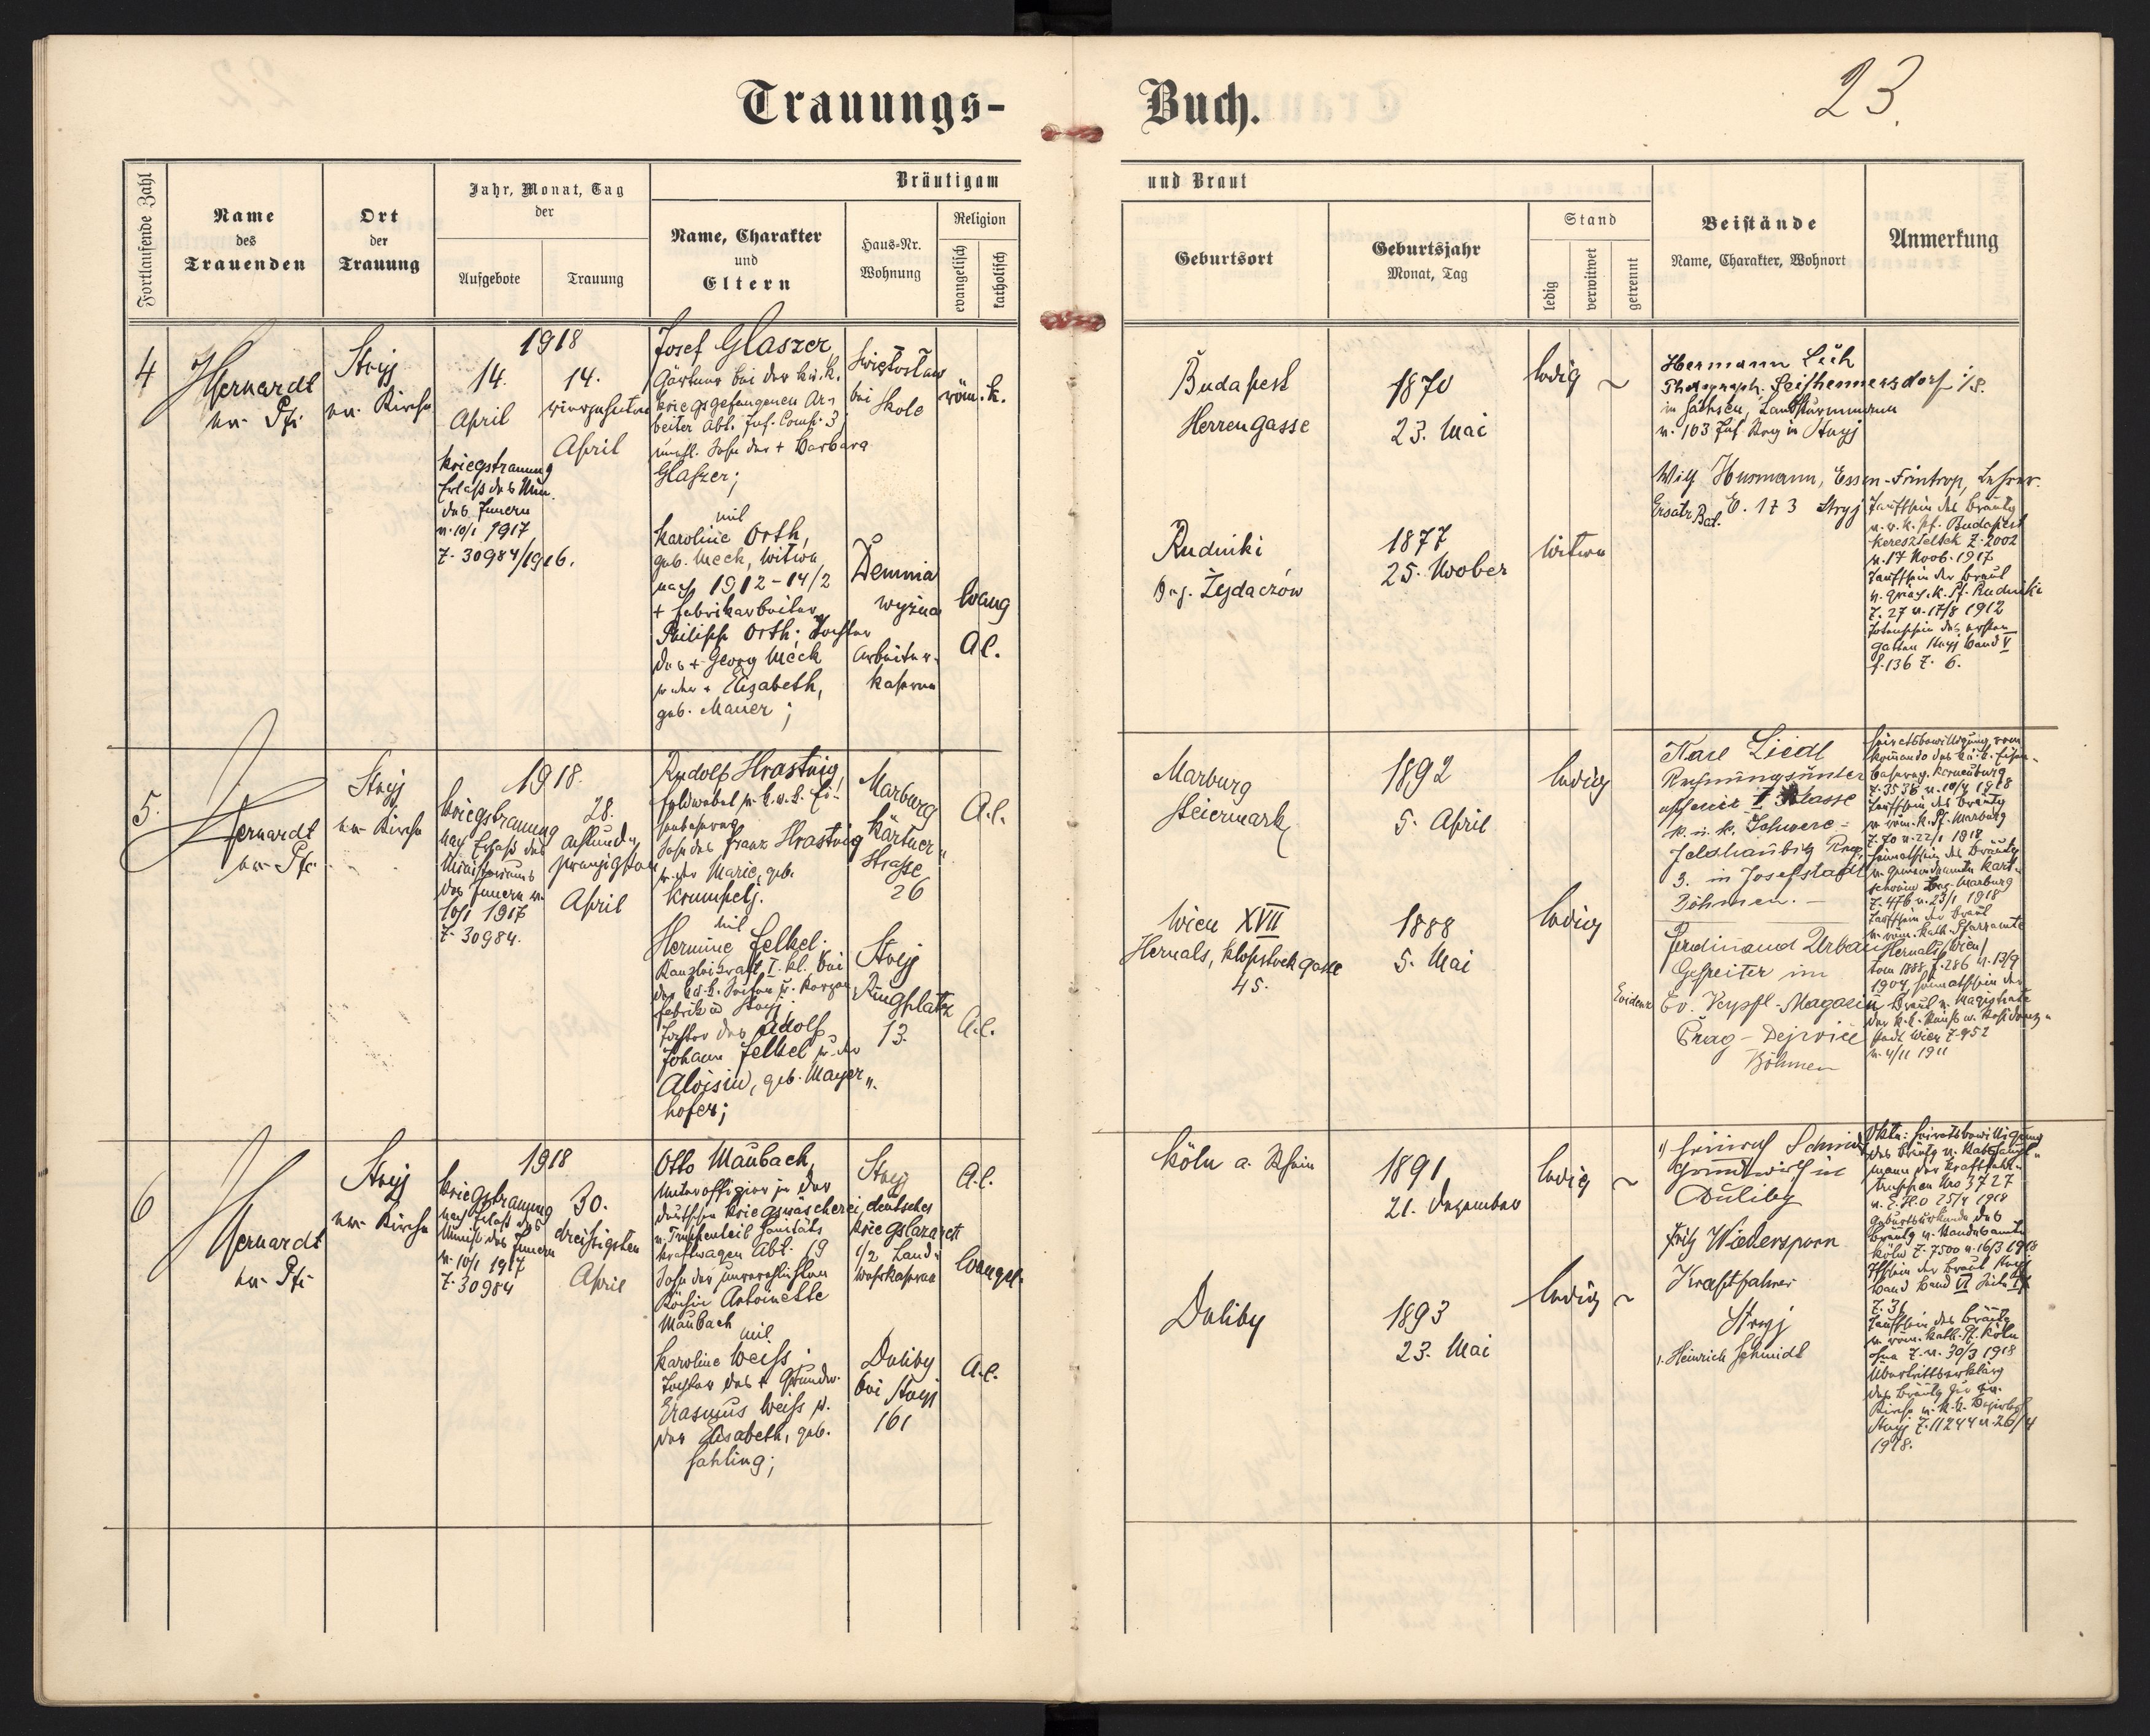 Trauungs-
Buch.
23.
Fortlaufende Zahl
Name
des
Trauenden
Ort
der
Trauung
Jahr, Monat, Tag
der
Aufgebote
Trauung
Bräutigam
Name, Charakter
und
Eltern
Haus-Nr.
Wohnung
Religion
evangelisch
katholisch
und Braut
Geburtsort
Geburtsjahr
Monat, Tag
Stand
ledig
verwitwet
getrennt
Beistände
Name, Charakter, Wohnort
Anmerkung
4
ev. Pfr
Stryj
ev. Kirche
1918
14.
April
Kriegstrauung
Erlaß des Min.
des Innern
v. 10/1 1917
Z. 30984/1916.
14.
vierzehnten
April
Josef Glaszer
Gärtner bei der k.u.k.
kriegsgefangenen Ar-
beiter Abt. Inf. Comp. 3,
unehl. Sohn der + Barbara
Glaszer;
mit
Karoline Orth,
geb. Meck, Witwe
nach 1912-14/2
+ Fabrikarbeiter
Philipp Orth: Tochter
des + Georg Meck
u. der + Elisabeth,
geb. Mauer;
Swiętosław
bei Skole
röm. k.
Demnia
wyżna
Arbeiter-
kaserne
Evang
A.C.
Budapest
Herrengasse
1870
23. Mai
ledig
Rudniki
Bez. Żydaczów
1877
25. Novber
Witwe
Hermann
Photograph. Seifhennersdorf i/S.
in Sachsen, Landsturmmann
v. 103 Inf. Reg in Stryj
Wilh Husmann, Essen-Frintrop, Lehrer.
Ersatz Bat. E. 173 Stryj
Taufschein des Bräutg
v. r. k. Pf. Budapest
Kereszteltek Z. 2002
v. 17 Novb. 1917.
Taufschein der Braut
v. griech. k. Pf. Rudniki
Z. 27 v. 17/8 1912
Totenschein des ersten
Gatten Stryj Band V
f. 136 Z. 6.
5.
ev. Pfr.
Stryj
ev. Kirche
1918.
Kriegstrauung
nach Erlaß des
Ministeriums
des Innern v.
10/1 1917
Z. 30984.
28.
achtund-
zwanzigsten
April
Rudolf Hrastnig,
Feldwebel
Sohn des Franz Hrastnig
u. der Marie, geb.
Krumpetz.
mit
Hermine Felkel.
Kanzleikraft I. Kl. bei
Fabrik in Stryj
Tochter des Adolf
Johann Felkel u. der
Aloisia, geb. Mayer-
hofer;
Marburg
Kärtner-
Strasse
26
A.C.
Stryj
Ringplatz
13.
A.C.
Marburg
Steiermark
1892
5. April
ledig
Wien XVII
Hernals, Klopstockgasse
45.
1888
5. Mai
ledig
Karl Liedl
Rechnungsunter-
offizier I. Klasse
k. u. k. Schwere-
Feldhaubitz Reg.
3. in Josefstadt
Böhmen.
Ferdinand Urban
Gefreiter im
Evidenz
Ev. Verpfl.-Magazin
Prag-Dejvice
Böhmen
Heiratsbewilligung vom
Komando des k.u.k. Eisen-
bahnreg. Korneuburg
Z. 3538 v. 10/4 1918
Taufschein des Bräutg
v. röm. k. Pf. Marburg
Z. 70 v. 22/1 1918
Heimatschein des Bräutg
v. Gemeindeamte Kart-
schovin Bez. Marburg
Z. 476 v. 23/1 1918
Taufschein der Braut
v. röm. kath. Pfarramte
Hernals (Wien)
tom 1888, f. 286 v. 13/9
1904, Heimatschein der
Braut v. Magistrate
der k.k. Haupt u. Residenz-
stadt Wien Z. 952
v. 4/11 1911
6
ev. Pfr
Stryj
ev. Kirche
1918
Kriegstrauung
nach Erlaß des
Minist. des Innern
v. 10/1 1917
Z. 30984
30.
dreißigsten
April
Otto Maubach,
Unteroffizier in der
deutschen Kriegswäscherei,
kraftwagen Abt. 19
Sohn der unverehelichten
Köchin Antoinette
Maubach
mit
Karoline Weiss:
Tochter des + Grundw.
Erasmus Weiss u.
der Elisabeth, geb.
Fahling;
Stryj
deutsches
Kriegslazarett
1/2 Land-
wehrkaserne
A.C.
Evangel.
Duliby
bei Stryj
161
A.C.
Köln a. Rhein
1891
21. Dezember
ledig
Duliby
1893
23. Mai
ledig
1) Heinrich Schmidt
Grundwirth in
Duliby
Fritz Wiedersporn
Kraftfahrer
Stryj
1. Heinrich Schmidt
Okta: Heiratsbewilligung
des Bräutg v.
mann der Kraftfahr-
truppen Nro 3727
25/4 1918
Geburtsurkunde des
Bräutg v. Standesamte
Köln Z. 7500 v. 16/3 1918
Tfschein der Braut Stryj
Band VI Seite
Z. 31
Taufschein des Bräutg
v. röm. kath. Pf. Köln
ohne Z. v. 30/3 1918
Übertrittserklärg
des Bräutg zur ev.
Kirche v. k.k. Bezirksh
Stryj Z. 11244 v. 26/4
1918.